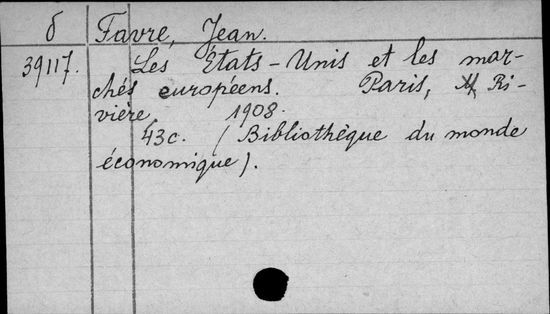 б Favre, Jean.
39117. Les États-Unis et les mar-
chés européens. Paris, M. Ri-
vière, 1908.
43c. (Bibliothèque du monde
économique).